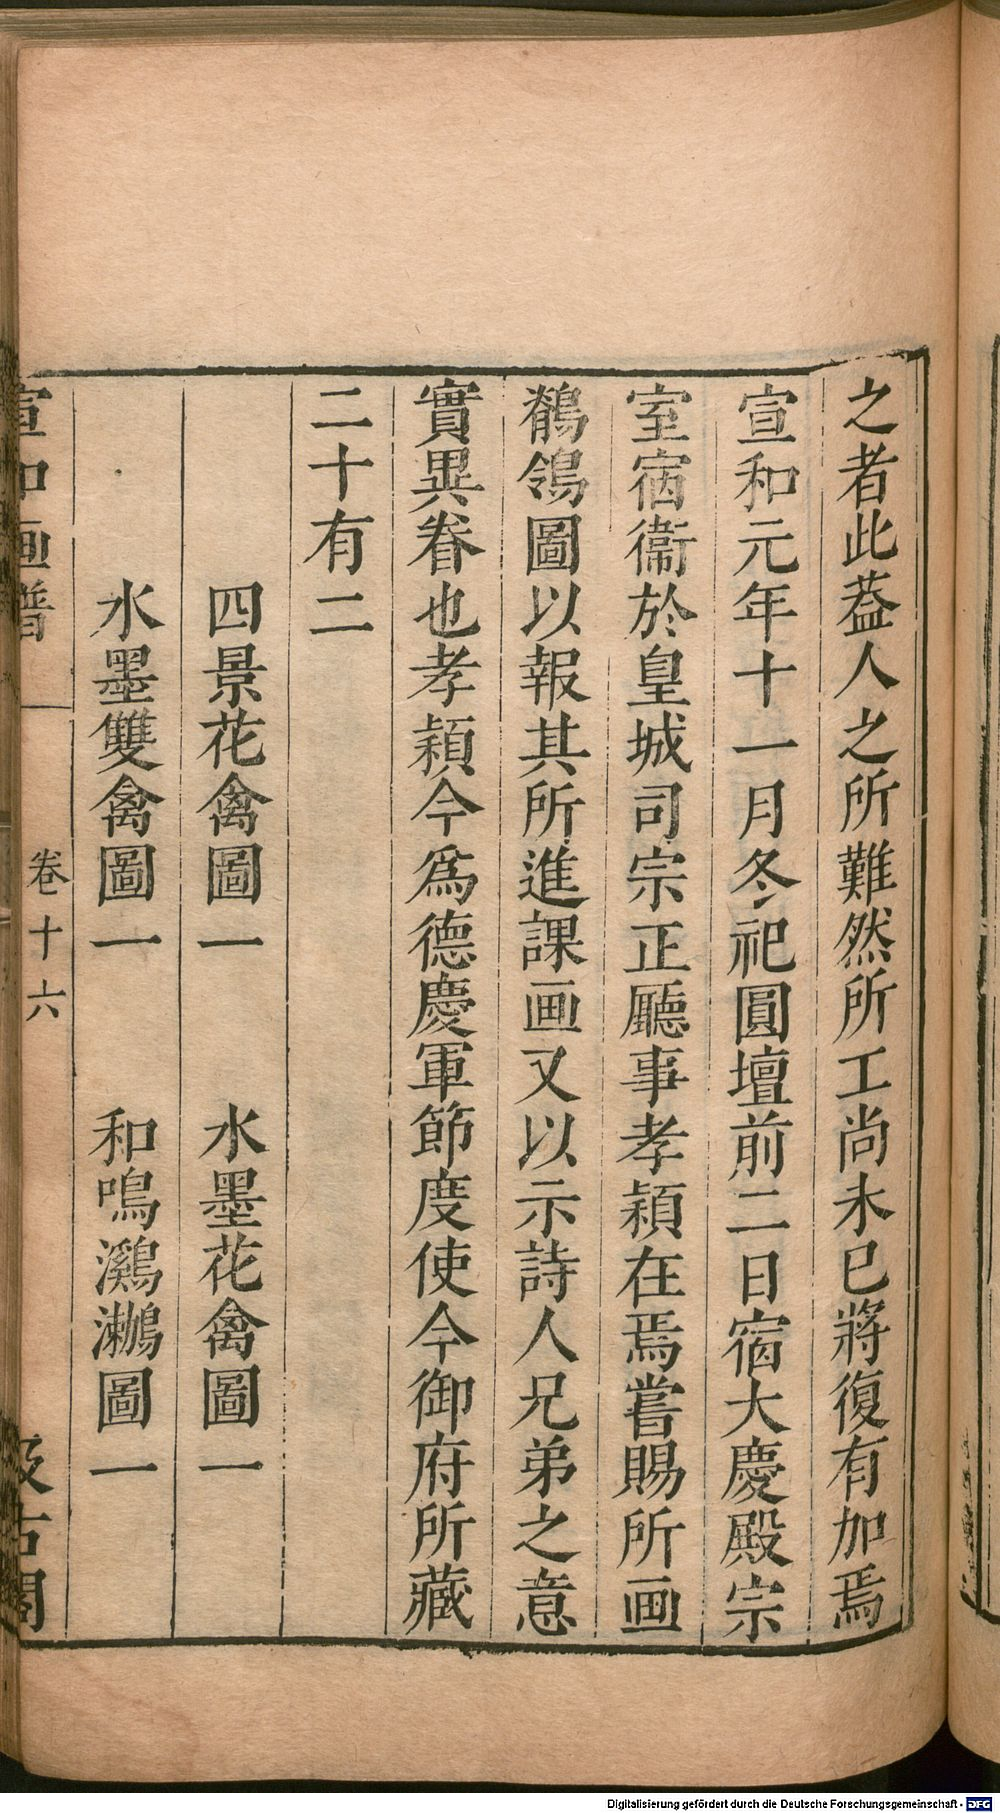 之者此葢人之所難然所工尚未已將復有加焉
宣和元年十一月冬祀圓壇前二日宿大慶殿宗
室宿衞於皇城司宗正廳事孝穎在焉嘗賜所画
鶺鴒圖以報其所進課画又以示詩人兄弟之意
實異眷也孝穎今爲德慶軍節度使今御府所藏
二十有二
四景花禽圖一 水墨花禽圖一
水墨雙禽圖一 和鳴鸂鷘圖一
宣和画譜 卷十六 汲古閣
Digitalisierung gefördert durch die Deutsche Forschungsgemeinschaft - DFG